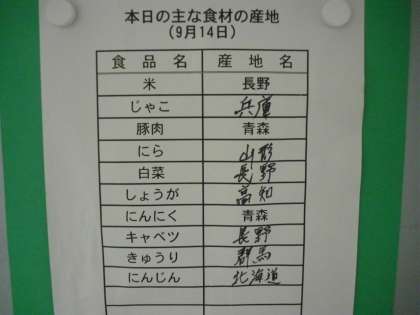 本日の主な食材の産地
(9月14日)
食品名 産地名
米 長野
じゃこ 兵庫
豚肉 青森
にら 山形
白菜 長野
しょうが 高知
にんにく 青森
キャベツ 長野
きゅうり 群馬
にんじん 北海道